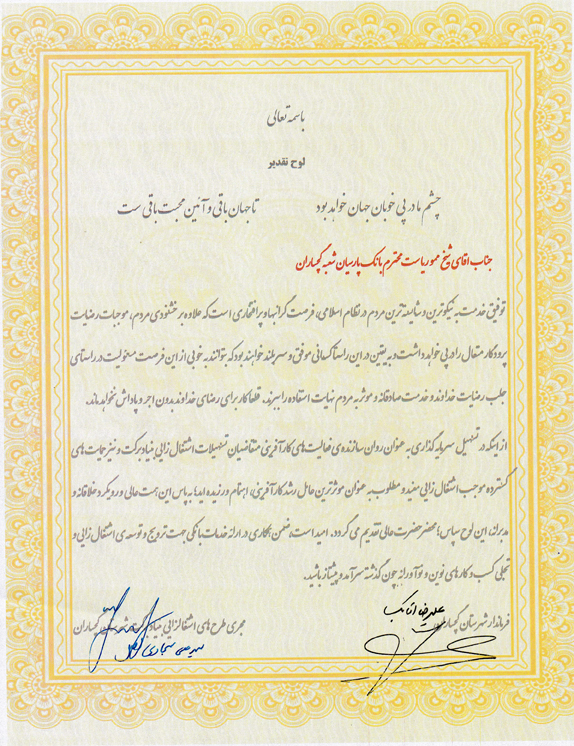 باسمه تعالی
لوح تقدیر
چشم ما در پی خوبان جهان خواهد بود تا جهان باقی و آئین محبت باقی ست
جناب اقای شیخ ممو ریاست محترم بانک پارسیان شعبه گچساران
توفیق خدمت به نیکوترین و شایسته ترین مردم در نظام اسلامی، فرصت گرانبها و پرافتخاری است که علاوه بر خشنودی مردم، موجبات رضایت
پروردگار متعال را در پی خواهد داشت و به یقین در این راستا کسانی موفق و سربلند خواهند بود که بتوانند به خوبی از این فرصت مسئولیت در راستای
جلب رضایت خداوند و خدمت صادقانه و موثر به مردم نهایت استفاده را ببرند. قطعا کار برای رضای خداوند بدون اجر و پاداش نخواهد ماند.
از اینکه در تسهیل سرمایه گذاری به عنوان روان سازنده ی فعالیت های کارآفرینی متقاضیان تسهیلات اشتغال زایی بنیاد برکت و نیز حمایت های
گسترده موجب اشتغال زایی مفید و مطلوب به عنوان موثرترین عامل رشد کارآفرینی، اهتمام ورزیده اید؛ به پاس این همت عالی و رویکرد خلاقانه و
مدبرانه، این لوح سپاس؛ محضر حضرت عالی تقدیم می گردد. امید است، ضمن همکاری در ارائه خدمات بانکی جهت ترویج و توسعه ی اشتغال زایی و
تجلی کسب و کارهای نوین و نوآورانه چون گذشته سرآمد و پیشتاز باشید.
علیرضا اتابک
فرماندار شهرستان گچساران مجری طرح های اشتغالزایی بنیاد برکت شهرستان گچساران